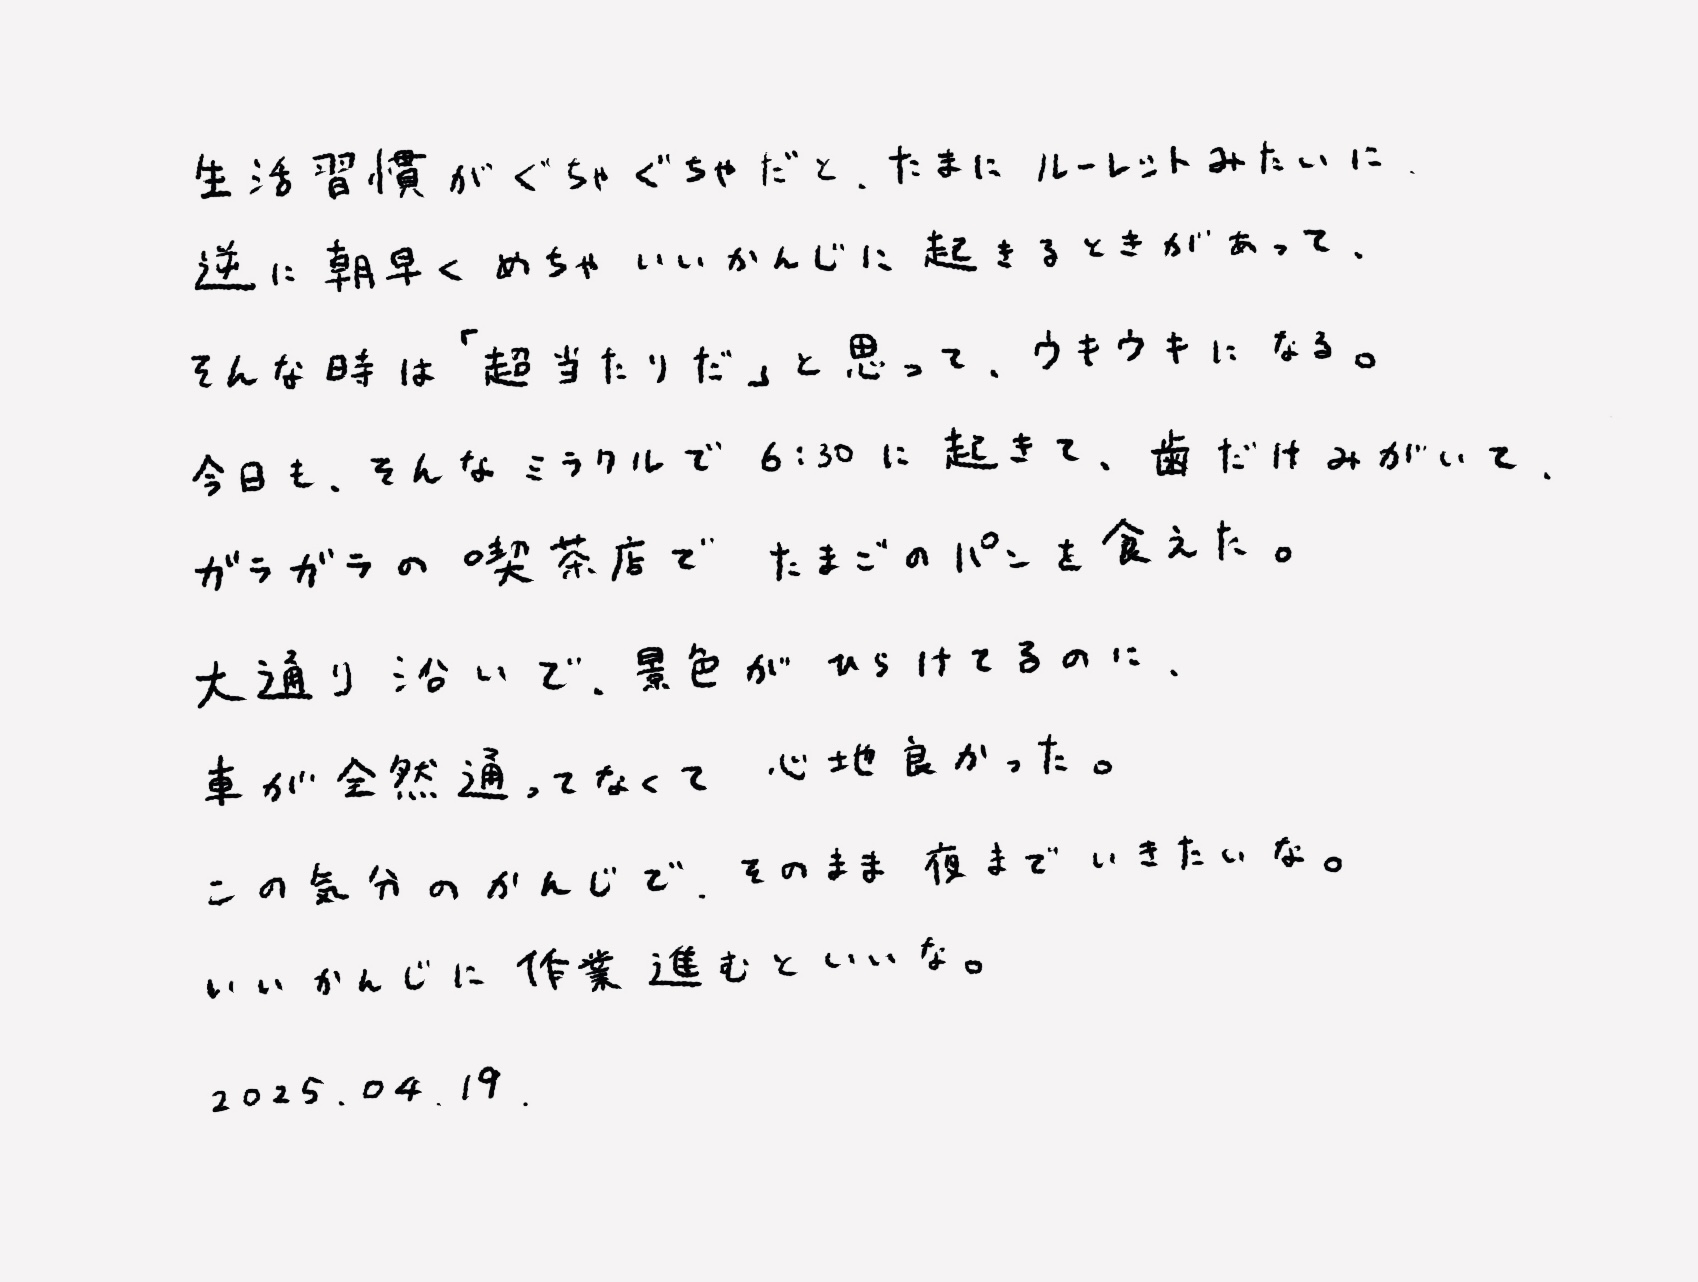 生活習慣がぐちゃぐちゃだと、たまにルーレットみたいに、
逆に朝早くめちゃいいかんじに起きるときがあって、
そんな時は「超当たりだ」と思って、ウキウキになる。
今日も、そんなミラクルで6:30に起きて、歯だけみがいて、
ガラガラの喫茶店でたまごのパンを食えた。
大通り沿いで、景色がひらけてるのに、
車が全然通ってなくて心地良かった。
この気分のかんじで、そのまま夜までいきたいな。
いいかんじに作業進むといいな。
2025.04.19.